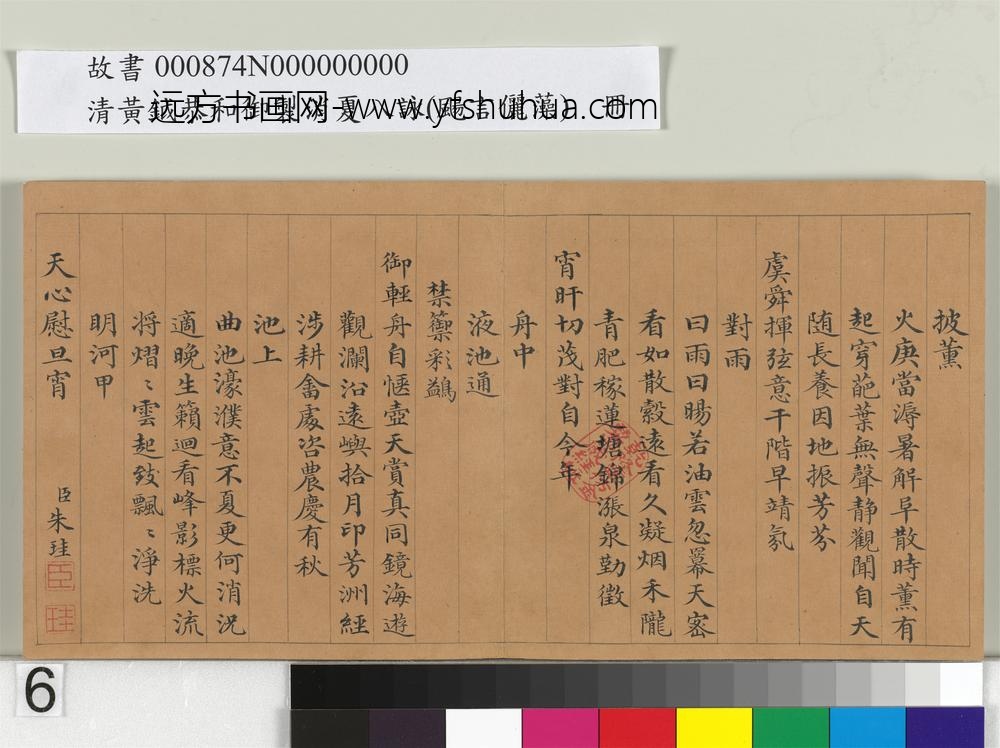 故書 000874N000000000
远方书画网-www.yfshuhua.com
披薰
火庚當溽暑解早散時薰有
起穿葩葉無聲静觀聞自天
随長養因地振芳芬
虞舜揮弦意干階早靖氛
對雨
曰雨曰暘若油雲忽羃天密
看如散縠遠看久凝烟禾隴
青肥稼蓮塘錦漲泉勤徵
宵旰切茂對自今年
舟中
液池通
禁籞彩鷁
御輕舟自愜壺天賞真同鏡海遊
觀瀾沿遠嶼拾月印芳洲經
涉耕畬處咨農慶有秋
池上
曲池濠濮意不夏更何消况
適晚生籟迴看峰影標火流
将熠〻雲起致飄〻淨洗
明河甲
天心慰旦宵
臣朱珪
臣
珪
6